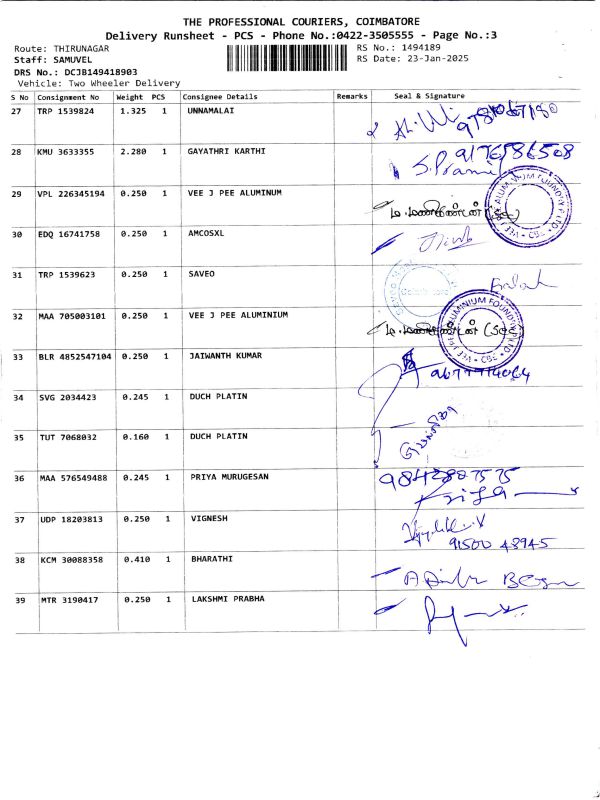 THE PROFESSIONAL COURIERS, COIMBATORE
Delivery Runsheet - PCS - Phone No.:0422-3505555 - Page No.:3
Route: THIRUNAGAR RS No.: 1494189
Staff: SAMUVEL RS Date: 23-Jan-2025
DRS No.: DCJB149418903
Vehicle: Two Wheeler Delivery
S No Consignment No Weight PCS Consignee Details Remarks Seal & Signature
27 TRP 1539824 1.325 1 UNNAMALAI
28 KMU 3633355 2.280 1 GAYATHRI KARTHI 9176586508
29 VPL 226345194 0.250 1 VEE J PEE ALUMINUM
30 EDQ 16741758 0.250 1 AMCOSXL
31 TRP 1539623 0.250 1 SAVEO
32 MAA 705003101 0.250 1 VEE J PEE ALUMINIUM
33 BLR 4852547104 0.250 1 JAIWANTH KUMAR
34 SVG 2034423 0.245 1 DUCH PLATIN
35 TUT 7068032 0.160 1 DUCH PLATIN
36 MAA 576549488 0.245 1 PRIYA MURUGESAN 9842887575
37 UDP 18203813 0.250 1 VIGNESH
91500 48945
38 KCM 30088358 0.410 1 BHARATHI
39 MTR 3190417 0.250 1 LAKSHMI PRABHA